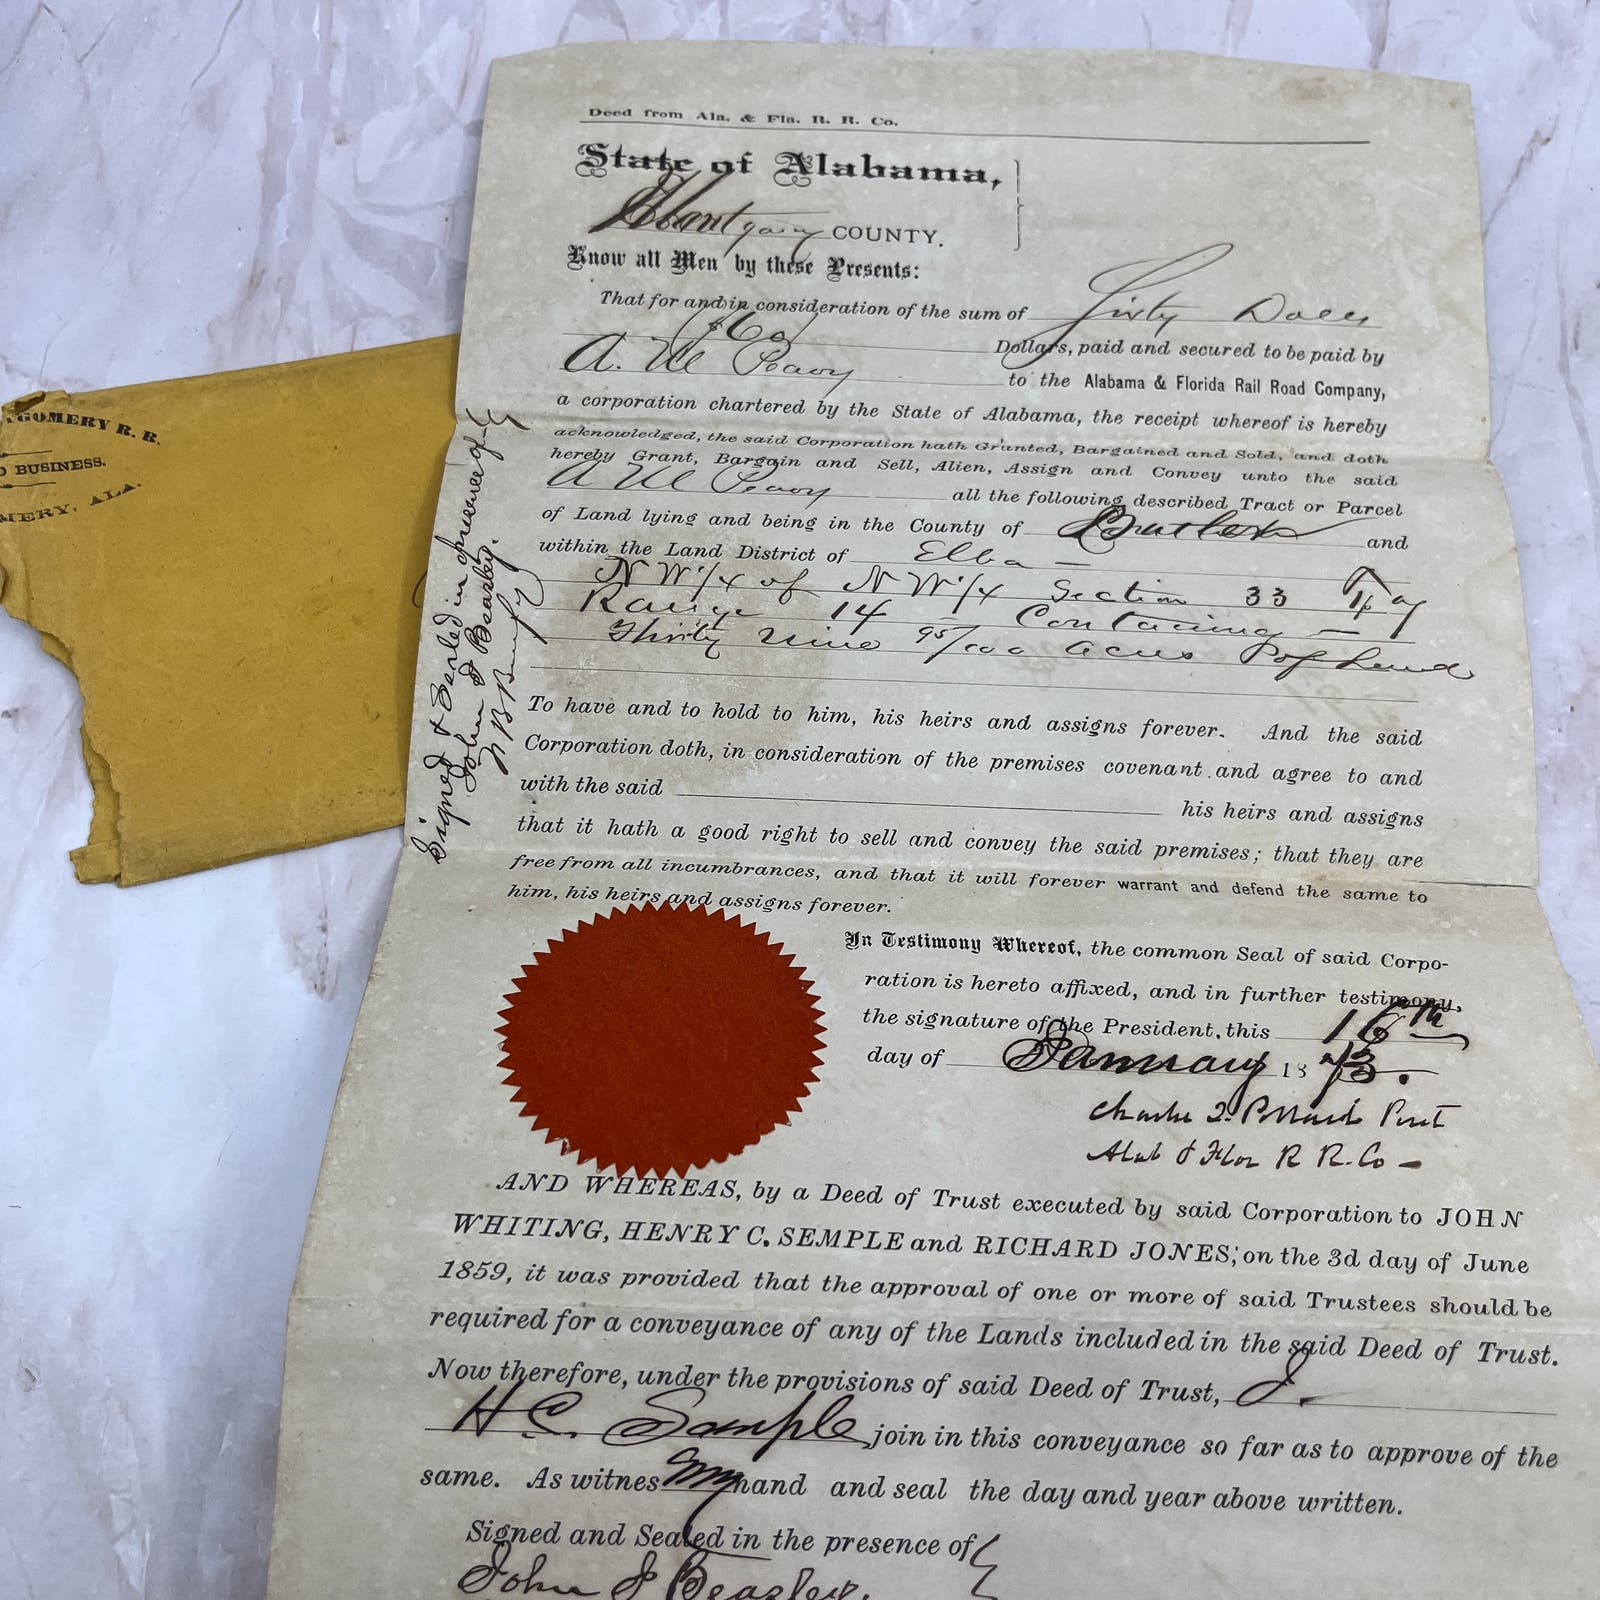 Deed from Ala. & Fla. R. R. Co.
State of Alabama,
Montgomery COUNTY.
Know all Men by these Presents:
That for and in consideration of the sum of Sixty Dolls
$60/ Dollars, paid and secured to be paid by
A. M Peavy to the Alabama & Florida Rail Road Company,
a corporation chartered by the State of Alabama, the receipt whereof is hereby
acknowledged, the said Corporation hath Granted, Bargained and Sold, and doth
hereby Grant, Bargain and Sell, Alien, Assign and Convey unto the said
A M Peavy all the following described Tract or Parcel
of Land lying and being in the County of Butler and
within the Land District of Elba
N W 1/4 of N W 1/4 Section 33 T
Range 14 Containing
Thirty nine 95/100 acres of Land
To have and to hold to him, his heirs and assigns forever. And the said
Corporation doth, in consideration of the premises covenant and agree to and
with the said his heirs and assigns
that it hath a good right to sell and convey the said premises; that they are
free from all incumbrances, and that it will forever warrant and defend the same to
him, his heirs and assigns forever.
In Testimony Whereof, the common Seal of said Corpo-
ration is hereto affixed, and in further testimony,
the signature of the President, this 16th
day of January 1873.
Charles T. Pollard Prest
Alab & Flor R R. Co
AND WHEREAS, by a Deed of Trust executed by said Corporation to JOHN
WHITING, HENRY C. SEMPLE and RICHARD JONES, on the 3d day of June
1859, it was provided that the approval of one or more of said Trustees should be
required for a conveyance of any of the Lands included in the said Deed of Trust.
Now therefore, under the provisions of said Deed of Trust, I.
H. C. Semple join in this conveyance so far as to approve of the
same. As witness my hand and seal the day and year above written.
Signed and Sealed in the presence of
John J Beazley.
Signed & Sealed in presence of
John J Beazley.
TGOMERY R. R.
D BUSINESS.
MERY, ALA.